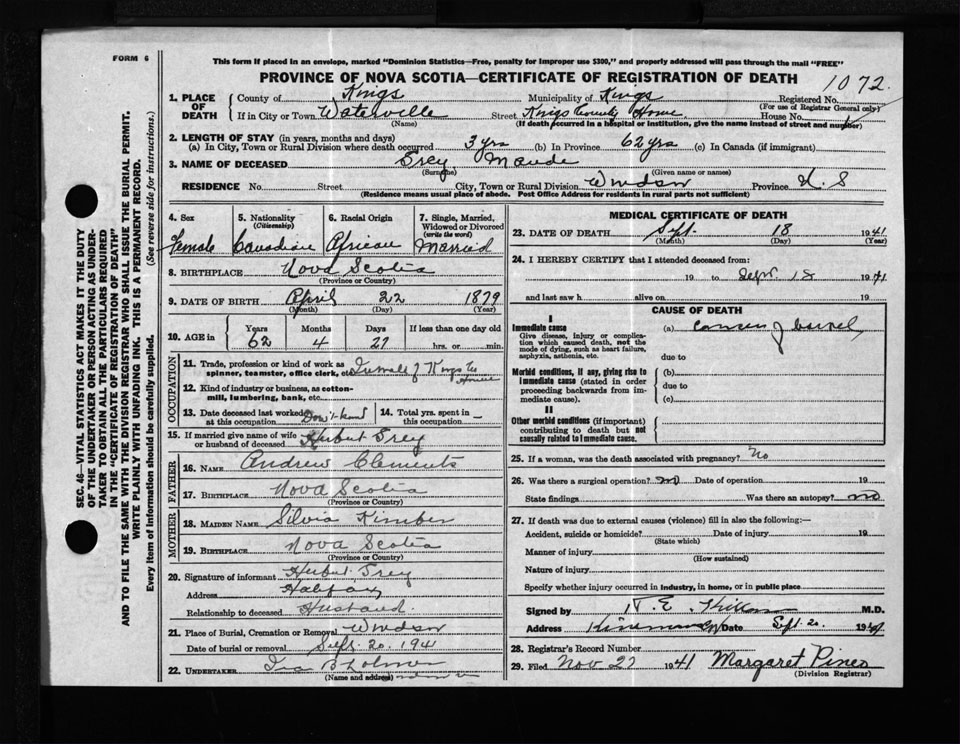 FORM 6
This form if placed in an envelope, marked "Dominion Statistics—Free, penalty for improper use $300," and properly addressed will pass through the mail "FREE"
PROVINCE OF NOVA SCOTIA—CERTIFICATE OF REGISTRATION OF DEATH
1072
1. PLACE OF DEATH County of Kings Municipality of Kings Registered No.
(For use of Registrar General only)
If in City or Town Waterville Street Kings County Home House No.
(Name) (If death occurred in a hospital or institution, give the name instead of street and number)
2. LENGTH OF STAY (in years, months and days)
(a) In City, Town or Rural Division where death occurred 3 yrs (b) In Province 62 yrs (c) In Canada (if immigrant)
3. NAME OF DECEASED Maude
(Surname) (Given name or names)
RESIDENCE No. Street City, Town or Rural Division Windsor Province N. S
(Residence means usual place of abode. Post Office Address for residence in rural parts not sufficient)
4. Sex Female
5. Nationality (Citizenship) Canadian
6. Racial Origin African
7. Single, Married, Widowed or Divorced (write the word) Married
8. BIRTHPLACE Nova Scotia
(Province or Country)
9. DATE OF BIRTH April 22 1879
(Month) (Day) (Year)
10. AGE in Years 62 Months 4 Days 27 If less than one day old hrs. or min.
OCCUPATION
11. Trade, profession or kind of work as spinner, teamster, office clerk, etc. Inmate of Kings Co Home
12. Kind of industry or business, as cotton-mill, lumbering, bank, etc.
13. Date deceased last worked at this occupation Don't know
14. Total yrs. spent in this occupation —
15. If married give name of wife or husband of deceased Herbert
FATHER
16. NAME Andrew Clements
17. BIRTHPLACE Nova Scotia
(Province or Country)
MOTHER
18. MAIDEN NAME Silvia Kimber
19. BIRTHPLACE Nova Scotia
(Province or Country)
20. Signature of informant Herbert
Address Halifax
Relationship to deceased Husband
21. Place of Burial, Cremation or Removal Windsor
Date of burial or removal Sept. 20. 1941
22. UNDERTAKER Ira
(Name and address)
MEDICAL CERTIFICATE OF DEATH
23. DATE OF DEATH Sept. 18 1941
(Month) (Day) (Year)
24. I HEREBY CERTIFY that I attended deceased from:
19 to Sept. 18 1941
and last saw h alive on 19
CAUSE OF DEATH
I
Immediate cause (a) Cancer of bowel
Give disease, injury or complication which caused death, not the mode of dying, such as heart failure, asphyxia, asthenia, etc.
due to
Morbid conditions, if any, giving rise to immediate cause (stated in order proceeding backwards from immediate cause).
(b)
due to
(c)
II
Other morbid conditions (if important) contributing to death but not causally related to immediate cause.
25. If a woman, was the death associated with pregnancy? No
26. Was there a surgical operation? no Date of operation 19
State findings Was there an autopsy? no
27. If death was due to external causes (violence) fill in also the following:—
Accident, suicide or homicide? Date of injury 19
(State which)
Manner of injury
(How sustained)
Nature of injury
Specify whether injury occurred in industry, in home, or in public place
Signed by M.D.
Address Date Sept. 20. 1941
28. Registrar's Record Number
29. Filed Nov 27 1941 Margaret Pineo
(Division Registrar)
SEC. 46—VITAL STATISTICS ACT MAKES IT THE DUTY
OF THE UNDERTAKER OR PERSON ACTING AS UNDER-
TAKER TO OBTAIN ALL THE PARTICULARS REQUIRED
IN THE "CERTIFICATE OF REGISTRATION OF DEATH"
AND TO FILE THE SAME WITH THE DIVISION REGISTRAR WHO SHALL ISSUE THE BURIAL PERMIT.
WRITE PLAINLY WITH UNFADING INK. THIS IS A PERMANENT RECORD.
Every item of information should be carefully supplied. (See reverse side for instructions.)